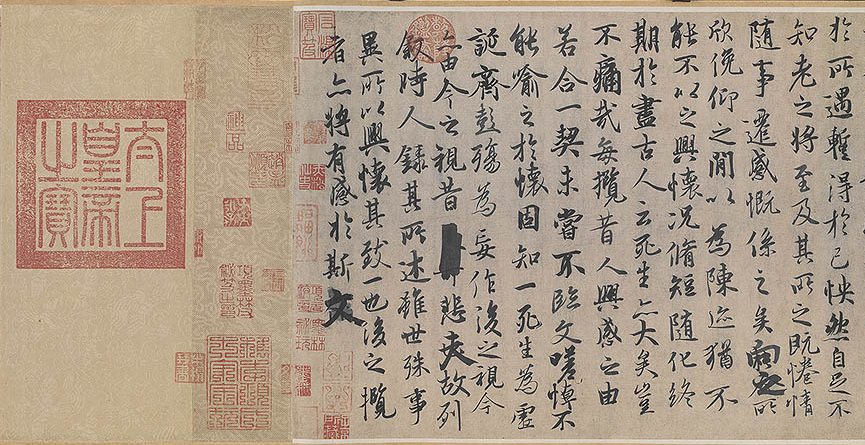 於所遇蹔得於己怏然自足不
知老之將至及其所之既惓情
隨事遷感慨係之矣向之所
欣俛仰之閒以為陳迹猶不
能不以之興懷況脩短隨化終
期於盡古人云死生亦大矣豈
不痛哉每攬昔人興感之由
若合一契未嘗不臨文嗟悼不
能喻之於懷固知一死生為虛
誕齊彭殤為妄作後之視今
亦由今之視昔悲夫故列
敘時人錄其所述雖世殊事
異所以興懷其致一也後之攬
者亦將有感於斯文
太上
皇帝
之寶